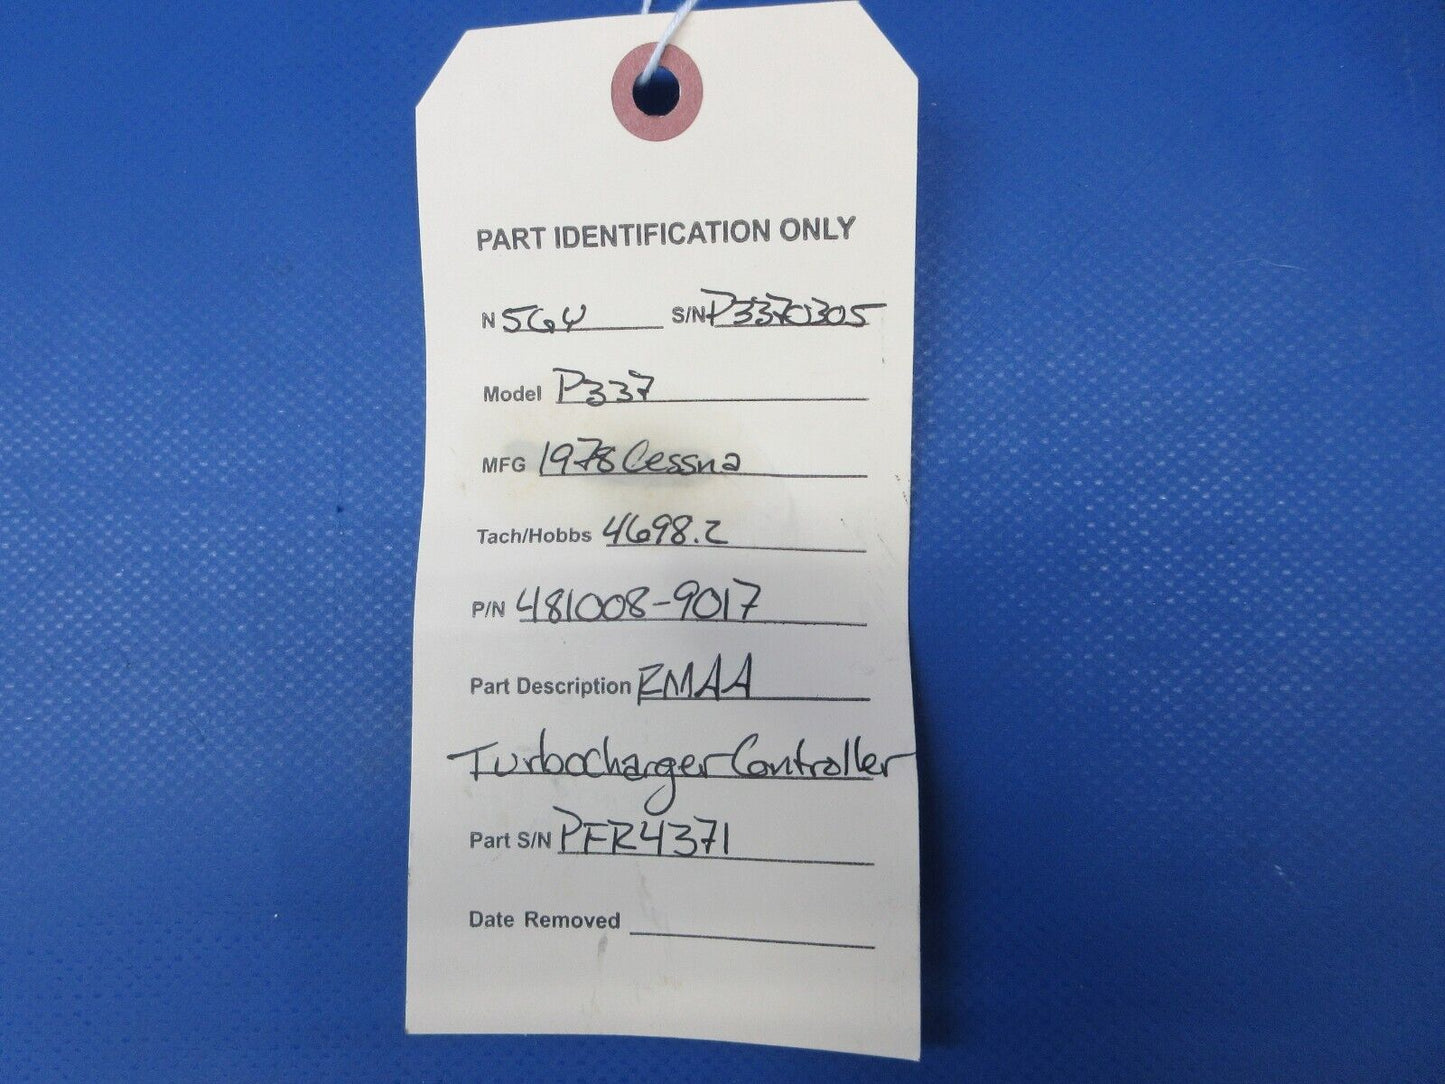 PART IDENTIFICATION ONLY
N 5GY S/N P3370305
Model P337
MFG 1978 Cessna
Tach/Hobbs 4698.2
P/N 481008-9017
Part Description RMAA
Turbocharger Controller
Part S/N PFR4371
Date Removed